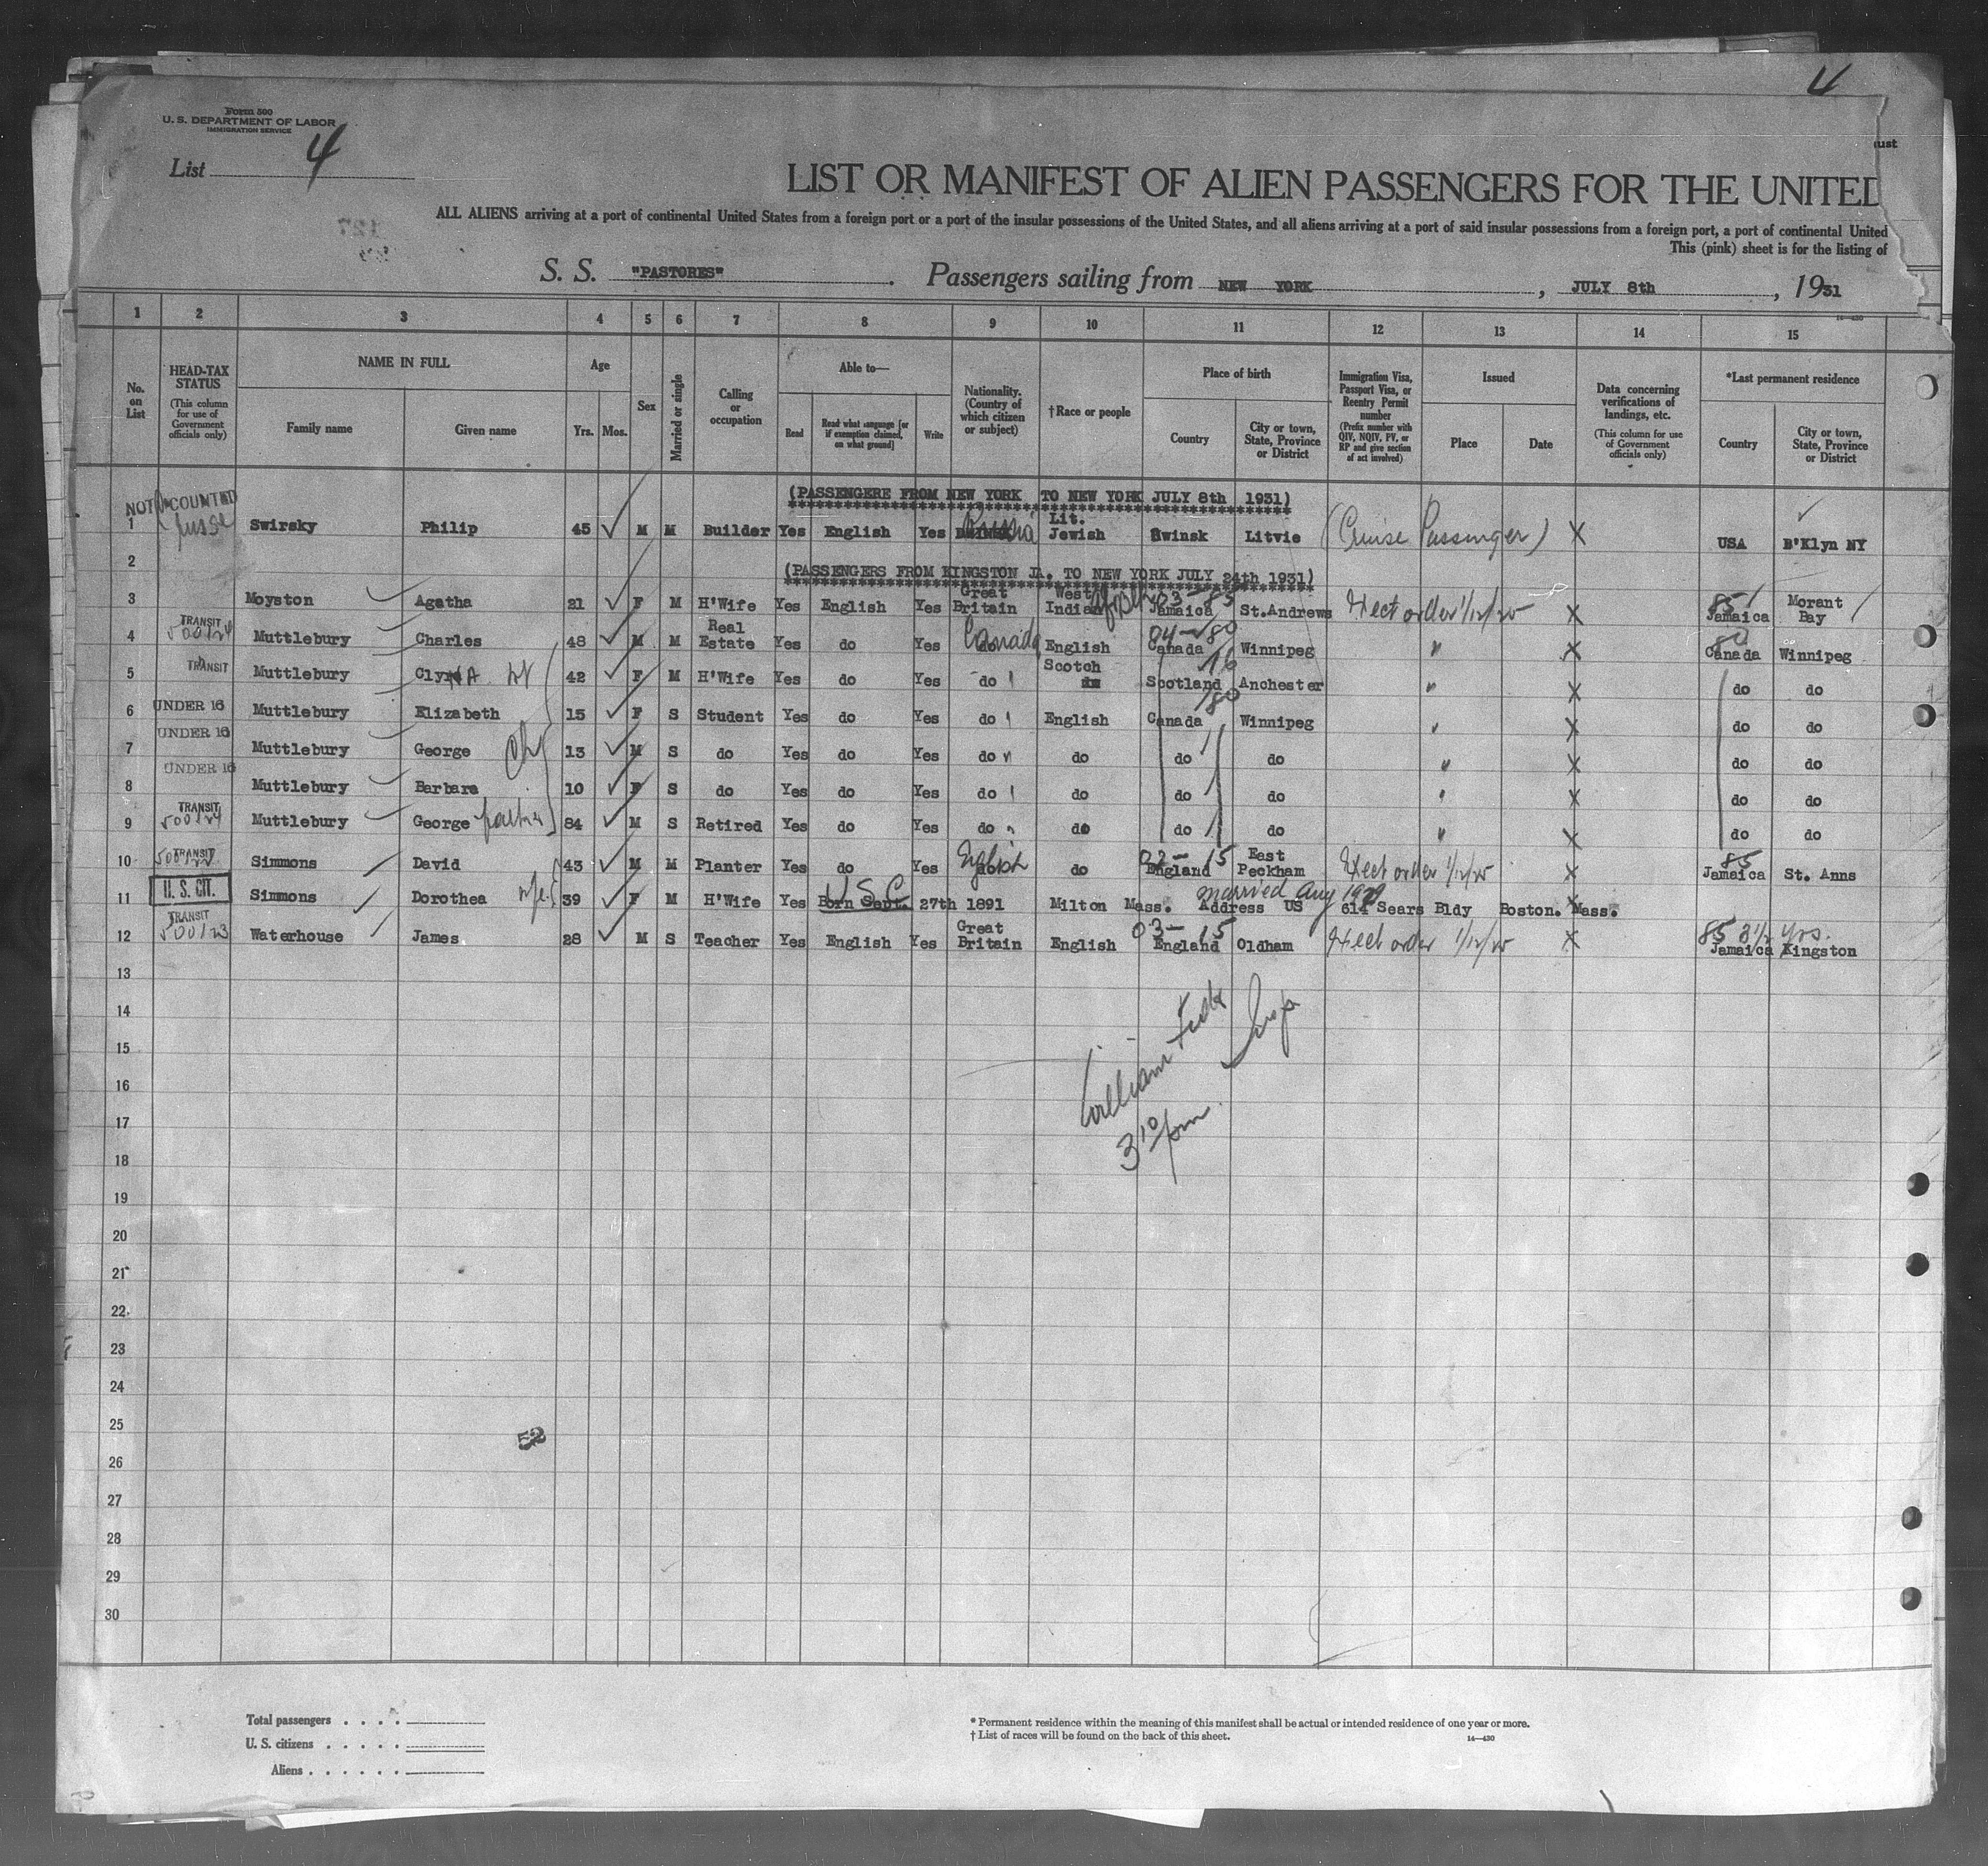 4
Form 500
U. S. DEPARTMENT OF LABOR
IMMIGRATION SERVICE
List 4
ust
LIST OR MANIFEST OF ALIEN PASSENGERS FOR THE UNITED
ALL ALIENS arriving at a port of continental United States from a foreign port or a port of the insular possessions of the United States, and all aliens arriving at a port of said insular possessions from a foreign port, a port of continental United
This (pink) sheet is for the listing of
S. S. "PASTORES". Passengers sailing from NEW YORK, JULY 8th, 1931
14—430
1 2 3 4 5 6 7 8 9 10 11 12 13 14 15
No. on List
HEAD-TAX STATUS (This column for use of Government officials only)
NAME IN FULL
Family name
Given name
Age
Yrs. Mos.
Sex
Married or single
Calling or occupation
Able to—
Read
Read what language [or if exemption claimed, on what ground]
Write
Nationality. (Country of which citizen or subject)
†Race or people
Place of birth
Country
City or town, State, Province or District
Immigration Visa, Passport Visa, or Reentry Permit number (Prefix number with QIV, NQIV, PV, or RP and give section of act involved)
Issued
Place
Date
Data concerning verifications of landings, etc. (This column for use of Government officials only)
*Last permanent residence
Country
City or town, State, Province or District
(PASSENGERE FROM NEW YORK TO NEW YORK JULY 8th 1931)
NOT COUNTED
1 Swirsky Philip 45 M M Builder Yes English Yes Russia Lit. Jewish Dwinsk Litvie (Cruise Passenger) X USA B'Klyn NY
2
(PASSENGERS FROM KINGSTON JA. TO NEW YORK JULY 24th 1931)
3 Moyston Agatha 21 F M H'Wife Yes English Yes Great Britain West Indian 03-85 Jamaica St.Andrews Exect order 1/12/25 X 85 Jamaica Morant Bay
4 TRANSIT 500124 Muttlebury Charles 48 M M Real Estate Yes do Yes Canada English 04-80 Canada Winnipeg " X 80 Canada Winnipeg
5 TRANSIT Muttlebury Clyn A 42 F M H'Wife Yes do Yes do Scotch 16 Scotland Anchester " X do do
6 UNDER 16 Muttlebury Elizabeth 15 F S Student Yes do Yes do English 80 Canada Winnipeg " X do do
7 UNDER 16 Muttlebury George Ch 13 M S do Yes do Yes do " do do do " X do do
8 UNDER 16 Muttlebury Barbara 10 F S do Yes do Yes do do do do " X do do
9 TRANSIT 500124 Muttlebury George father 84 M S Retired Yes do Yes do " do do do " X do do
10 TRANSIT Simmons David 43 M M Planter Yes do Yes English do 02-15 England East Peckham Exect order 1/12/25 X 85 Jamaica St. Anns
11 U. S. CIT. Simmons Dorothea wife 39 F M H'Wife Yes U S C Born Sept. 27th 1891 Milton Mass. married Aug Address US 614 Sears Bldy Boston. Mass. X
12 TRANSIT 500123 Waterhouse James 28 M S Teacher Yes English Yes Great Britain English 03-15 England Oldham Exect order 1/12/25 X 85 3 1/2 yrs. Jamaica Kingston
13
14
15
William Insp
16
17
3 10 pm
18
19
20
21
22
23
24
25
52
26
27
28
29
30
Total passengers
U. S. citizens
Aliens
* Permanent residence within the meaning of this manifest shall be actual or intended residence of one year or more.
† List of races will be found on the back of this sheet.
14—430